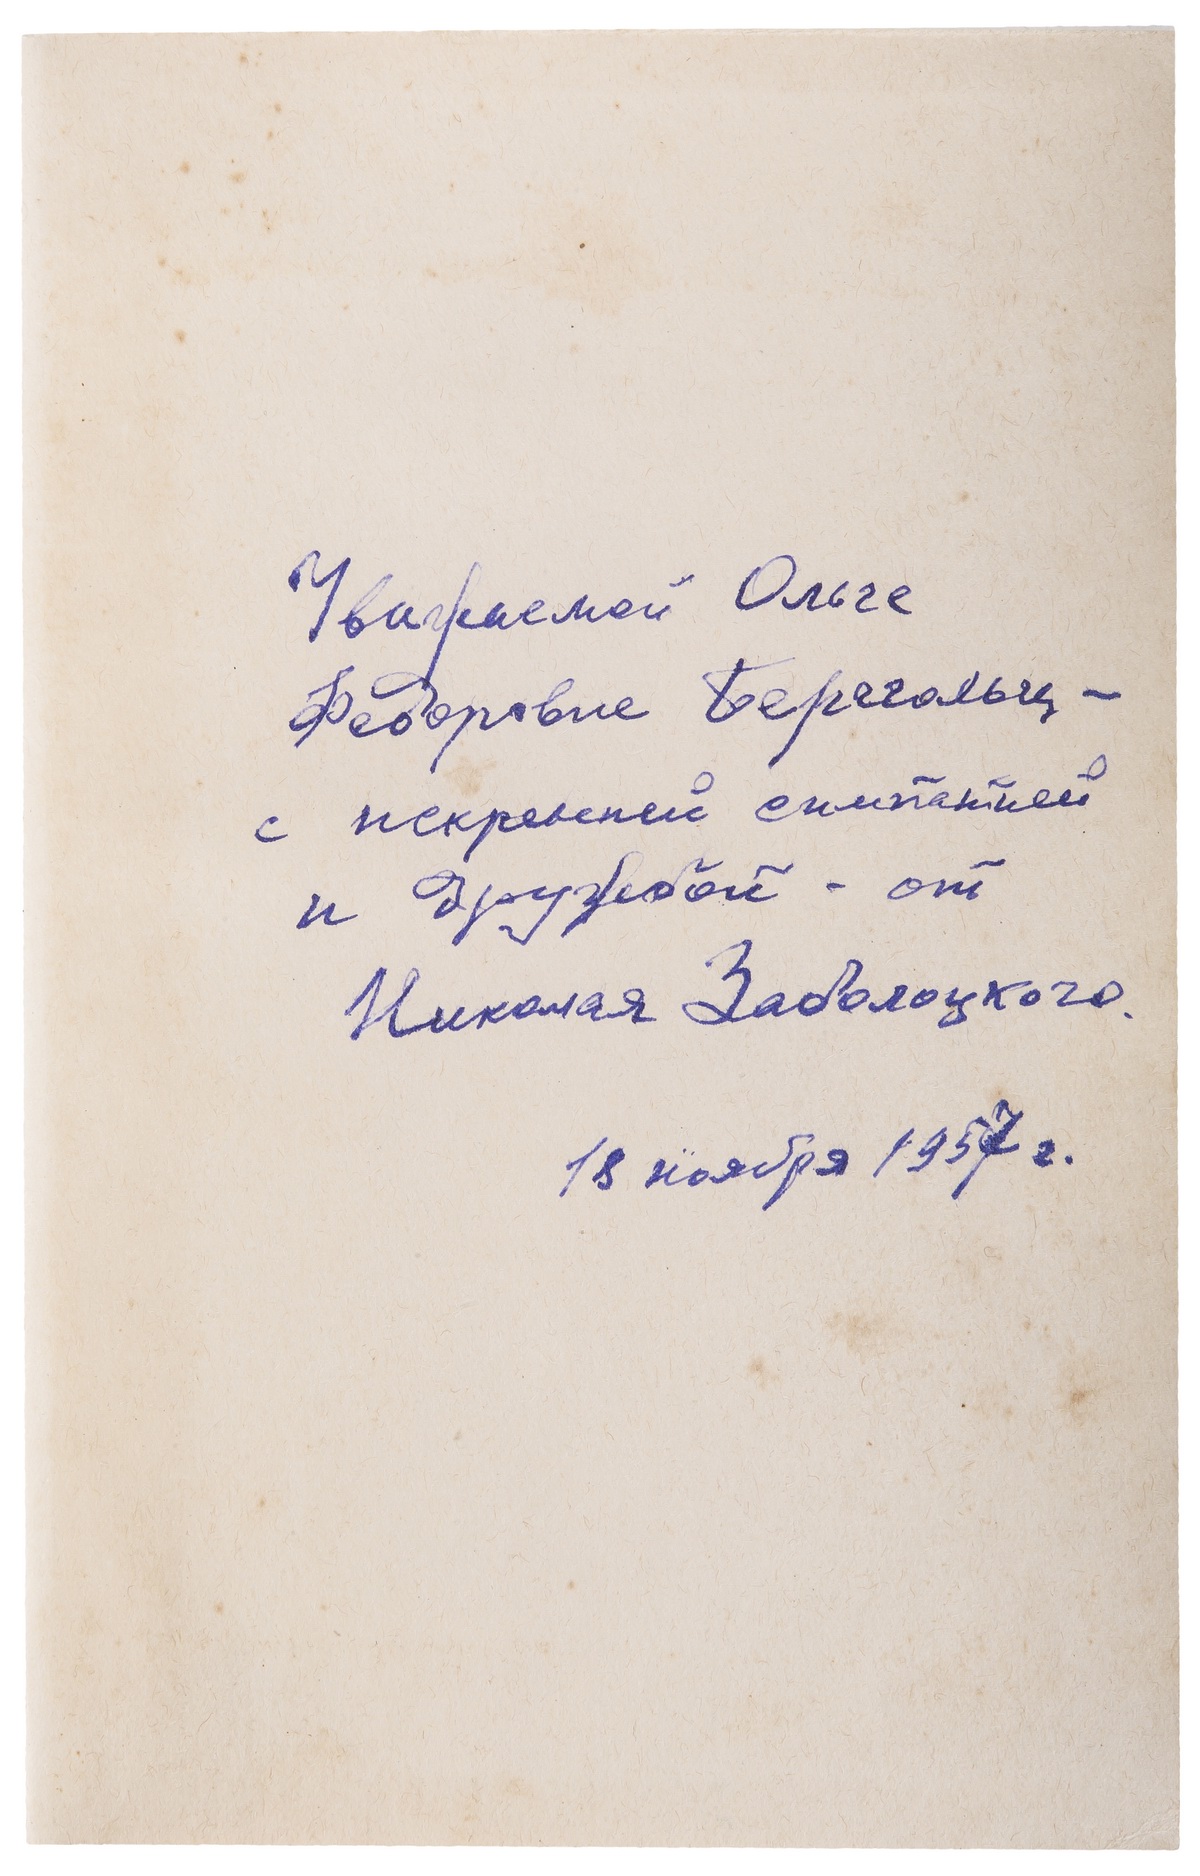 Уважаемой Ольге
Федоровне Берггольц –
с искренней симпатией
и дружбой – от
Николая Заболоцкого.
18 ноября 1957 г.